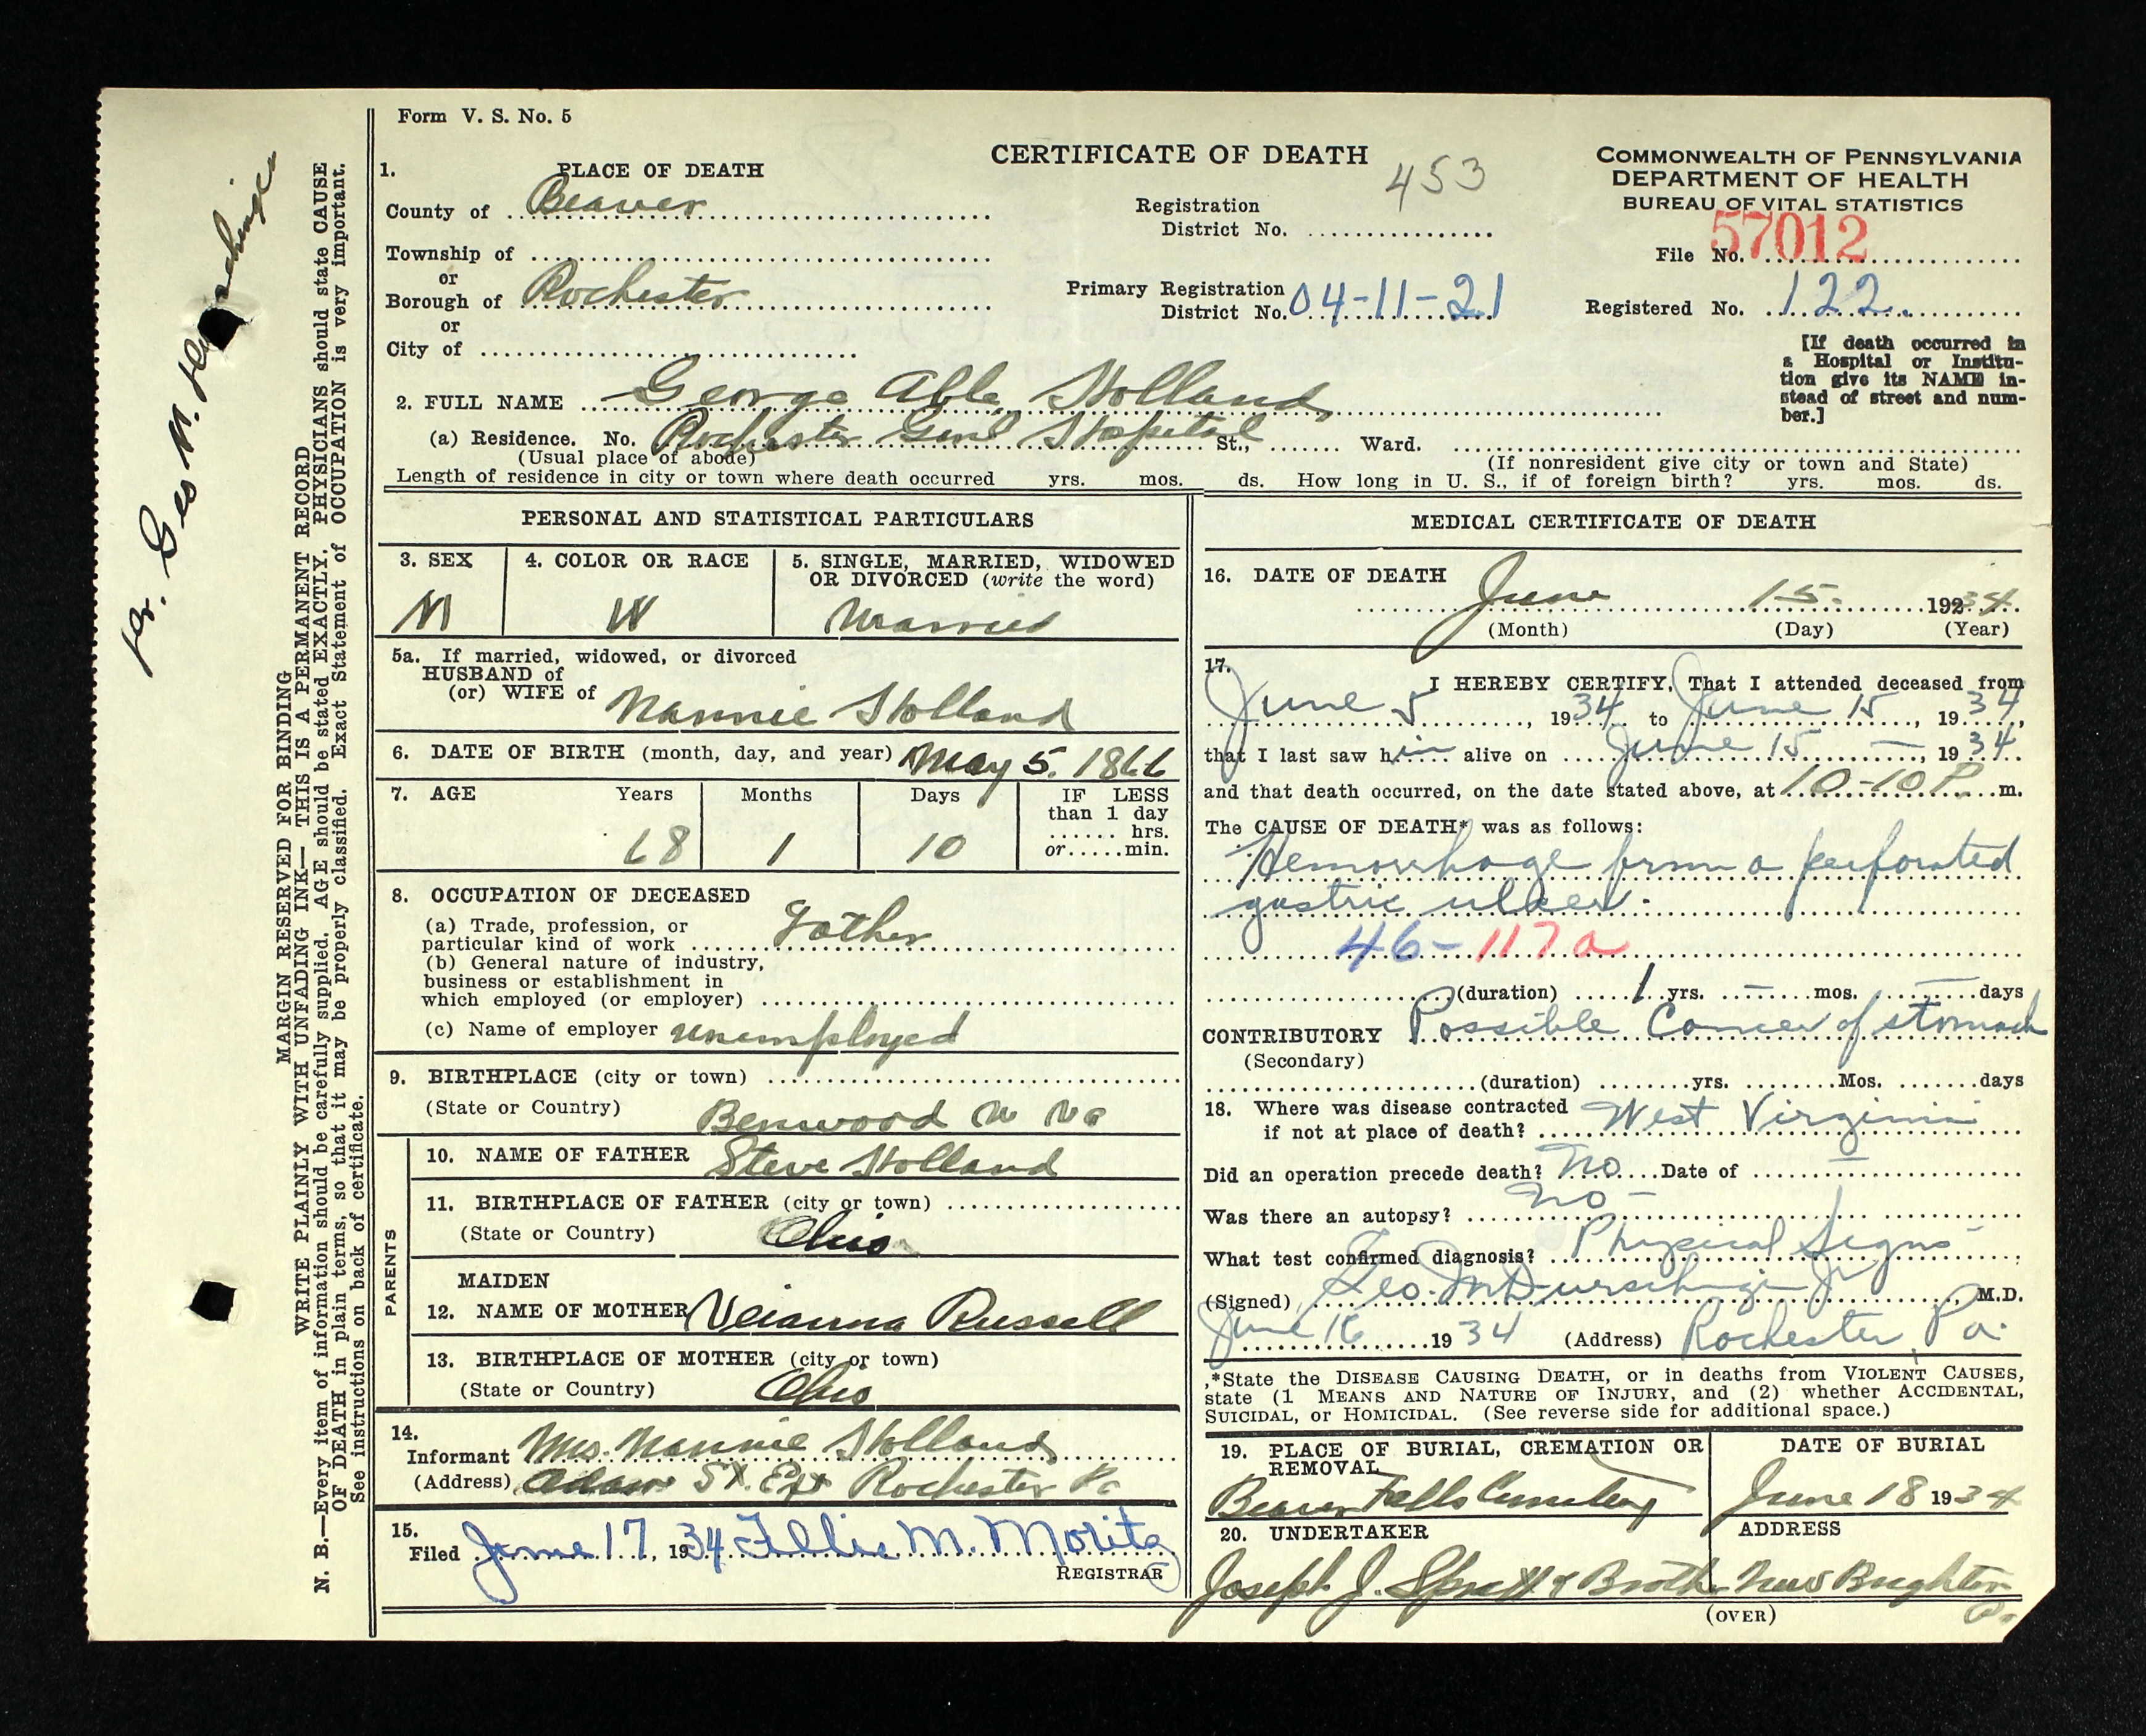 Form V. S. No. 5
CERTIFICATE OF DEATH
453
COMMONWEALTH OF PENNSYLVANIA
DEPARTMENT OF HEALTH
BUREAU OF VITAL STATISTICS
1. PLACE OF DEATH
County of Beaver
Township of
or
Borough of Rochester
or
City of
Registration
District No.
Primary Registration
District No. 04-11-21
File No. 57012
Registered No. 122.
[If death occurred in
a Hospital or Institu-
tion give its NAME in-
stead of street and num-
ber.]
2. FULL NAME George Able Holland
(a) Residence. No. Rochester Genl Hospital St., Ward.
(Usual place of abode) (If nonresident give city or town and State)
Length of residence in city or town where death occurred yrs. mos. ds. How long in U. S., if of foreign birth? yrs. mos. ds.
PERSONAL AND STATISTICAL PARTICULARS
3. SEX
M
4. COLOR OR RACE
W
5. SINGLE, MARRIED, WIDOWED
OR DIVORCED (write the word)
Married
5a. If married, widowed, or divorced
HUSBAND of
(or) WIFE of Nannie Holland
6. DATE OF BIRTH (month, day, and year) May 5. 1866
7. AGE Years Months Days IF LESS
than 1 day
hrs.
or min.
68 1 10
8. OCCUPATION OF DECEASED
(a) Trade, profession, or
particular kind of work
(b) General nature of industry,
business or establishment in
which employed (or employer)
(c) Name of employer unemployed
9. BIRTHPLACE (city or town)
(State or Country) Benwood W Va
PARENTS
10. NAME OF FATHER Steve Holland
11. BIRTHPLACE OF FATHER (city or town)
(State or Country) Ohio
MAIDEN
12. NAME OF MOTHER Russell
13. BIRTHPLACE OF MOTHER (city or town)
(State or Country) Ohio
14.
Informant Mrs. Nannie Holland
(Address) Adams St. Ext Rochester Pa
15.
Filed June 17, 1934 M. Moritz
REGISTRAR
MEDICAL CERTIFICATE OF DEATH
16. DATE OF DEATH
June 15. 19234
(Month) (Day) (Year)
17.
I HEREBY CERTIFY, That I attended deceased from
June 5, 1934 to June 15, 1934,
that I last saw him alive on June 15 - 1934.
and that death occurred, on the date stated above, at 10-10 P. m.
The CAUSE OF DEATH* was as follows:
Hemorrhage from a perforated
gastric ulcer.
46- 117a
(duration) 1 yrs. - mos. - days
CONTRIBUTORY Possible Cancer of stomach
(Secondary)
(duration) yrs. Mos. days
18. Where was disease contracted
if not at place of death? West Virginia
Did an operation precede death? No Date of
Was there an autopsy? No -
What test confirmed diagnosis? Physical Signs
(Signed) Geo. M Durschinger Jr M.D.
June 16 1934 (Address) Rochester, Pa.
*State the DISEASE CAUSING DEATH, or in deaths from VIOLENT CAUSES,
state (1 MEANS AND NATURE OF INJURY, and (2) whether ACCIDENTAL,
SUICIDAL, or HOMICIDAL. (See reverse side for additional space.)
19. PLACE OF BURIAL, CREMATION OR
REMOVAL
Beaver Falls Cemetery
DATE OF BURIAL
June 18 1934
20. UNDERTAKER
ADDRESS
Joseph J. & Broth New Brighton
Pa
(OVER)
MARGIN RESERVED FOR BINDING
WRITE PLAINLY WITH UNFADING INK— THIS IS A PERMANENT RECORD
N. B.—Every item of information should be carefully supplied. AGE should be stated EXACTLY. PHYSICIANS should state CAUSE
OF DEATH in plain terms, so that it may be properly classified. Exact Statement of OCCUPATION is very important.
See instructions on back of certificate.